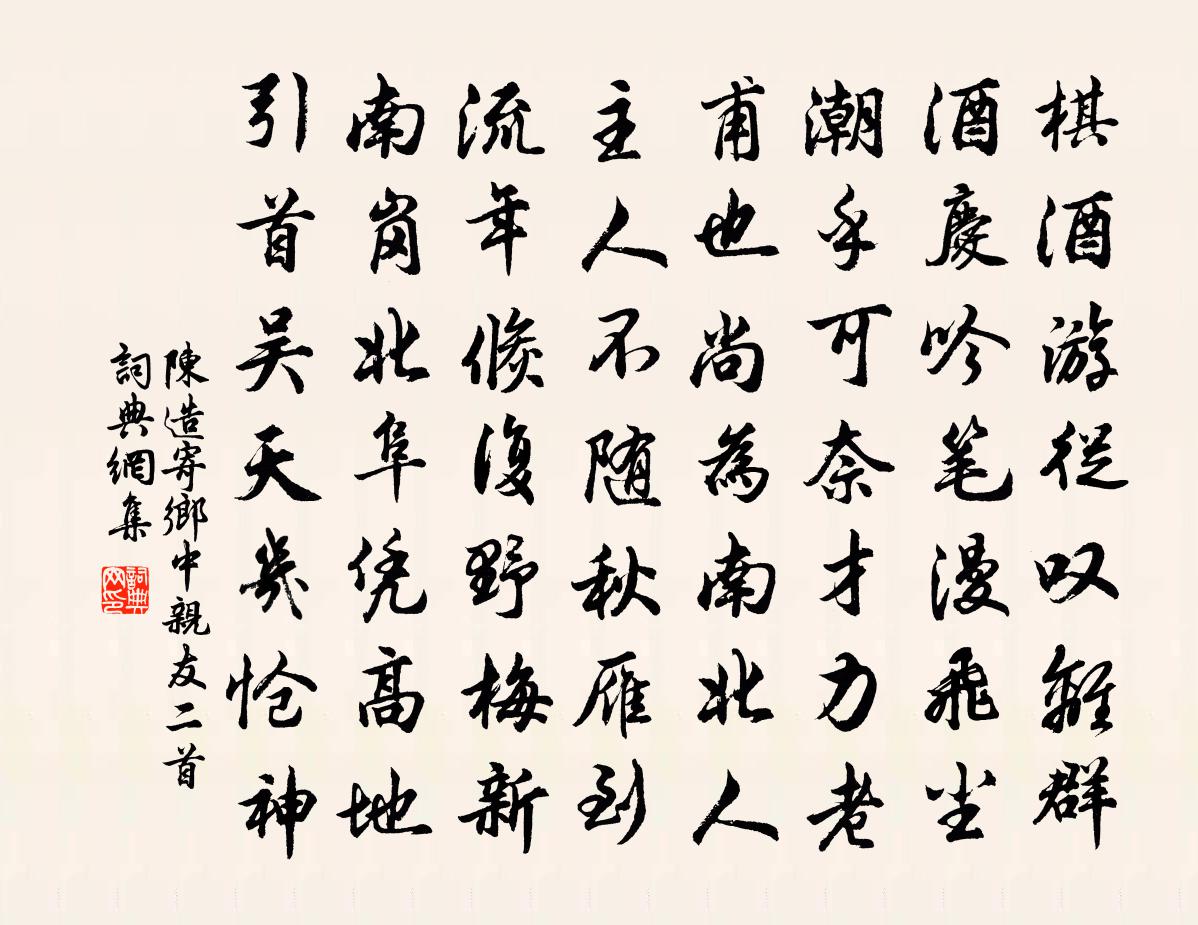 棋酒游從叹離群
酒慶吟笔漫飛尘
潮乎可奈才力老
甫也尚為南北人
主人不随秋雁到
流年倏復野梅新
南岗北阜凭高地
引首吴天幾怆神
陳造寄鄉中親友二首
詞典網集
詞典
网印